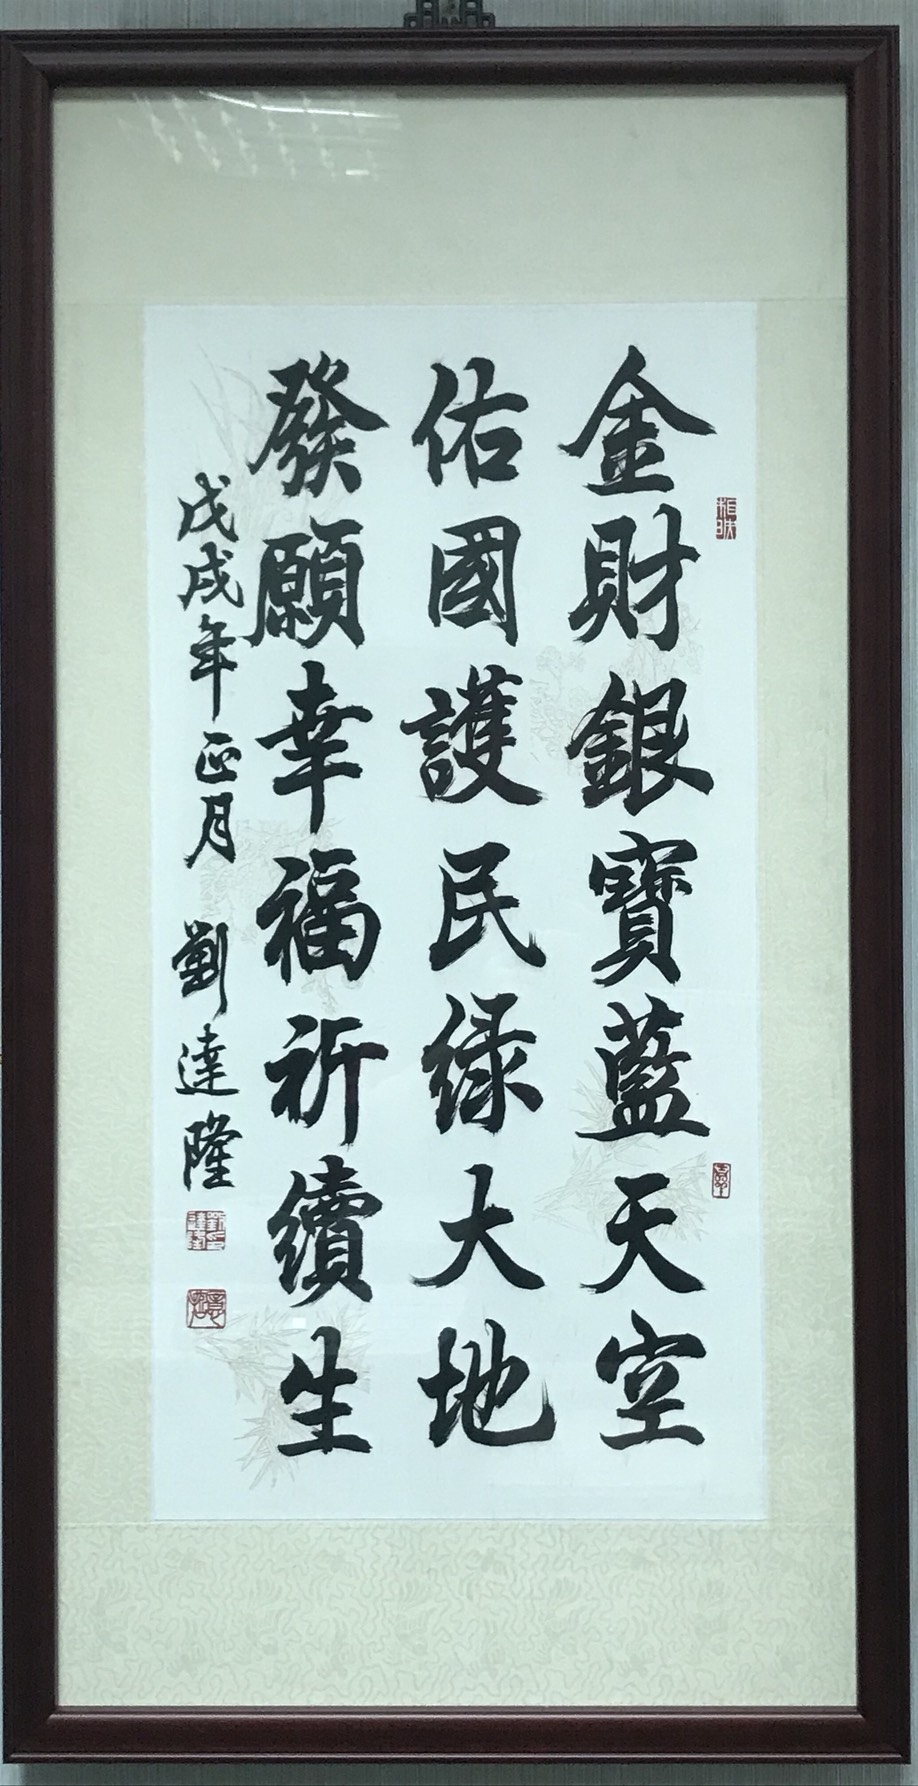 金財銀寶藍天空
佑國護民绿大地
發願幸福祈續生
戊戌年正月 劉達隆